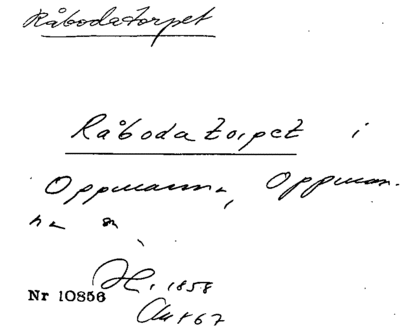 Råbodatorpet
Råbodatorpet i
Oppmanna, Oppman-
na sn
H. 1858
Nr 10856